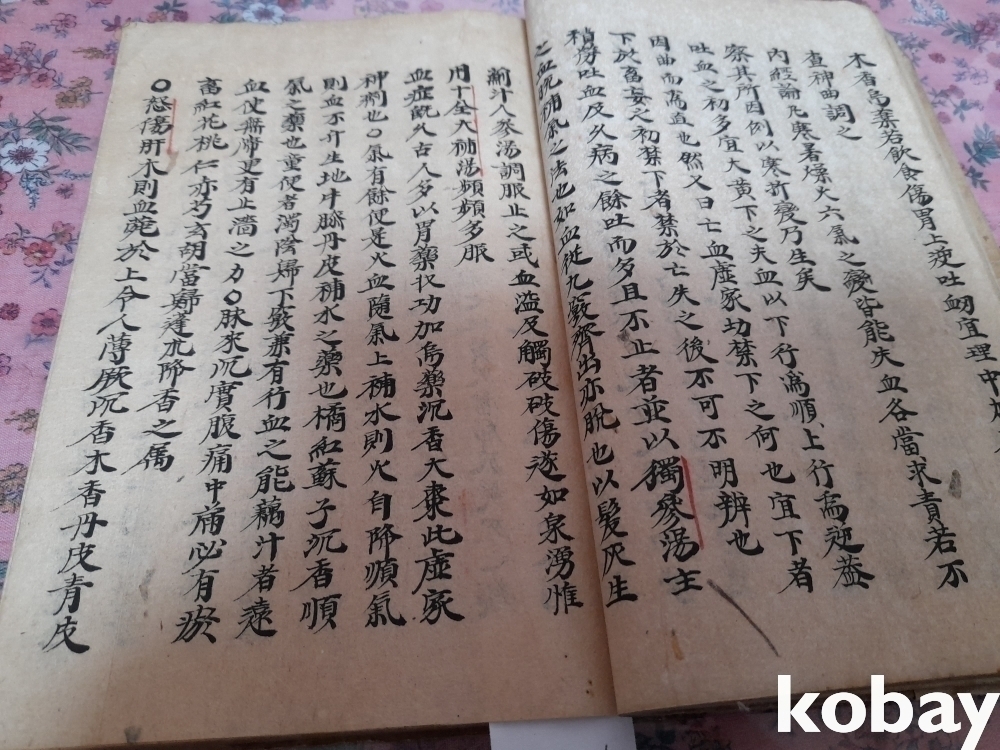 木香烏藥若飲食傷胃上逆吐衂宜理中加
查神曲調之
內經論凡寒暑燥火六氣之變皆能失血各當求責若不
察其所因例以寒折變乃生矣
吐血之初多宜大黃下之夫血以下行為順上行為逆蓋
因曲而為直也然又曰亡血虛家切禁下之何也宜下者
下於妄之初禁下者禁於亡失之後不可不明辨也
稍傍吐血及久病之餘吐而多且不止者並以獨參湯主
之血脫補氣之法也如血從九竅齊出亦脫也以髮灰生
薊汁人參湯調服止之或血溢及觸破破傷遂如泉湧惟
用十全大補湯頻頻多服
血症既久古人多以胃藥收功加烏藥沉香大棗此虛家
神劑也○氣有餘便是火血隨氣上補水則火自降順氣
則血不升生地牛膝丹皮補水之藥也橘紅蘇子沉香順
氣之藥也童便者濁陰歸下竅兼有行血之能藕汁者遠
血使無滯更有止濇之力○脉來沉實腹痛中滿必有瘀
畜紅花桃仁赤芍玄胡當歸蓬朮降香之屬
○怒傷肝木則血菀於上令人薄厥沉香木香丹皮青皮
kobay